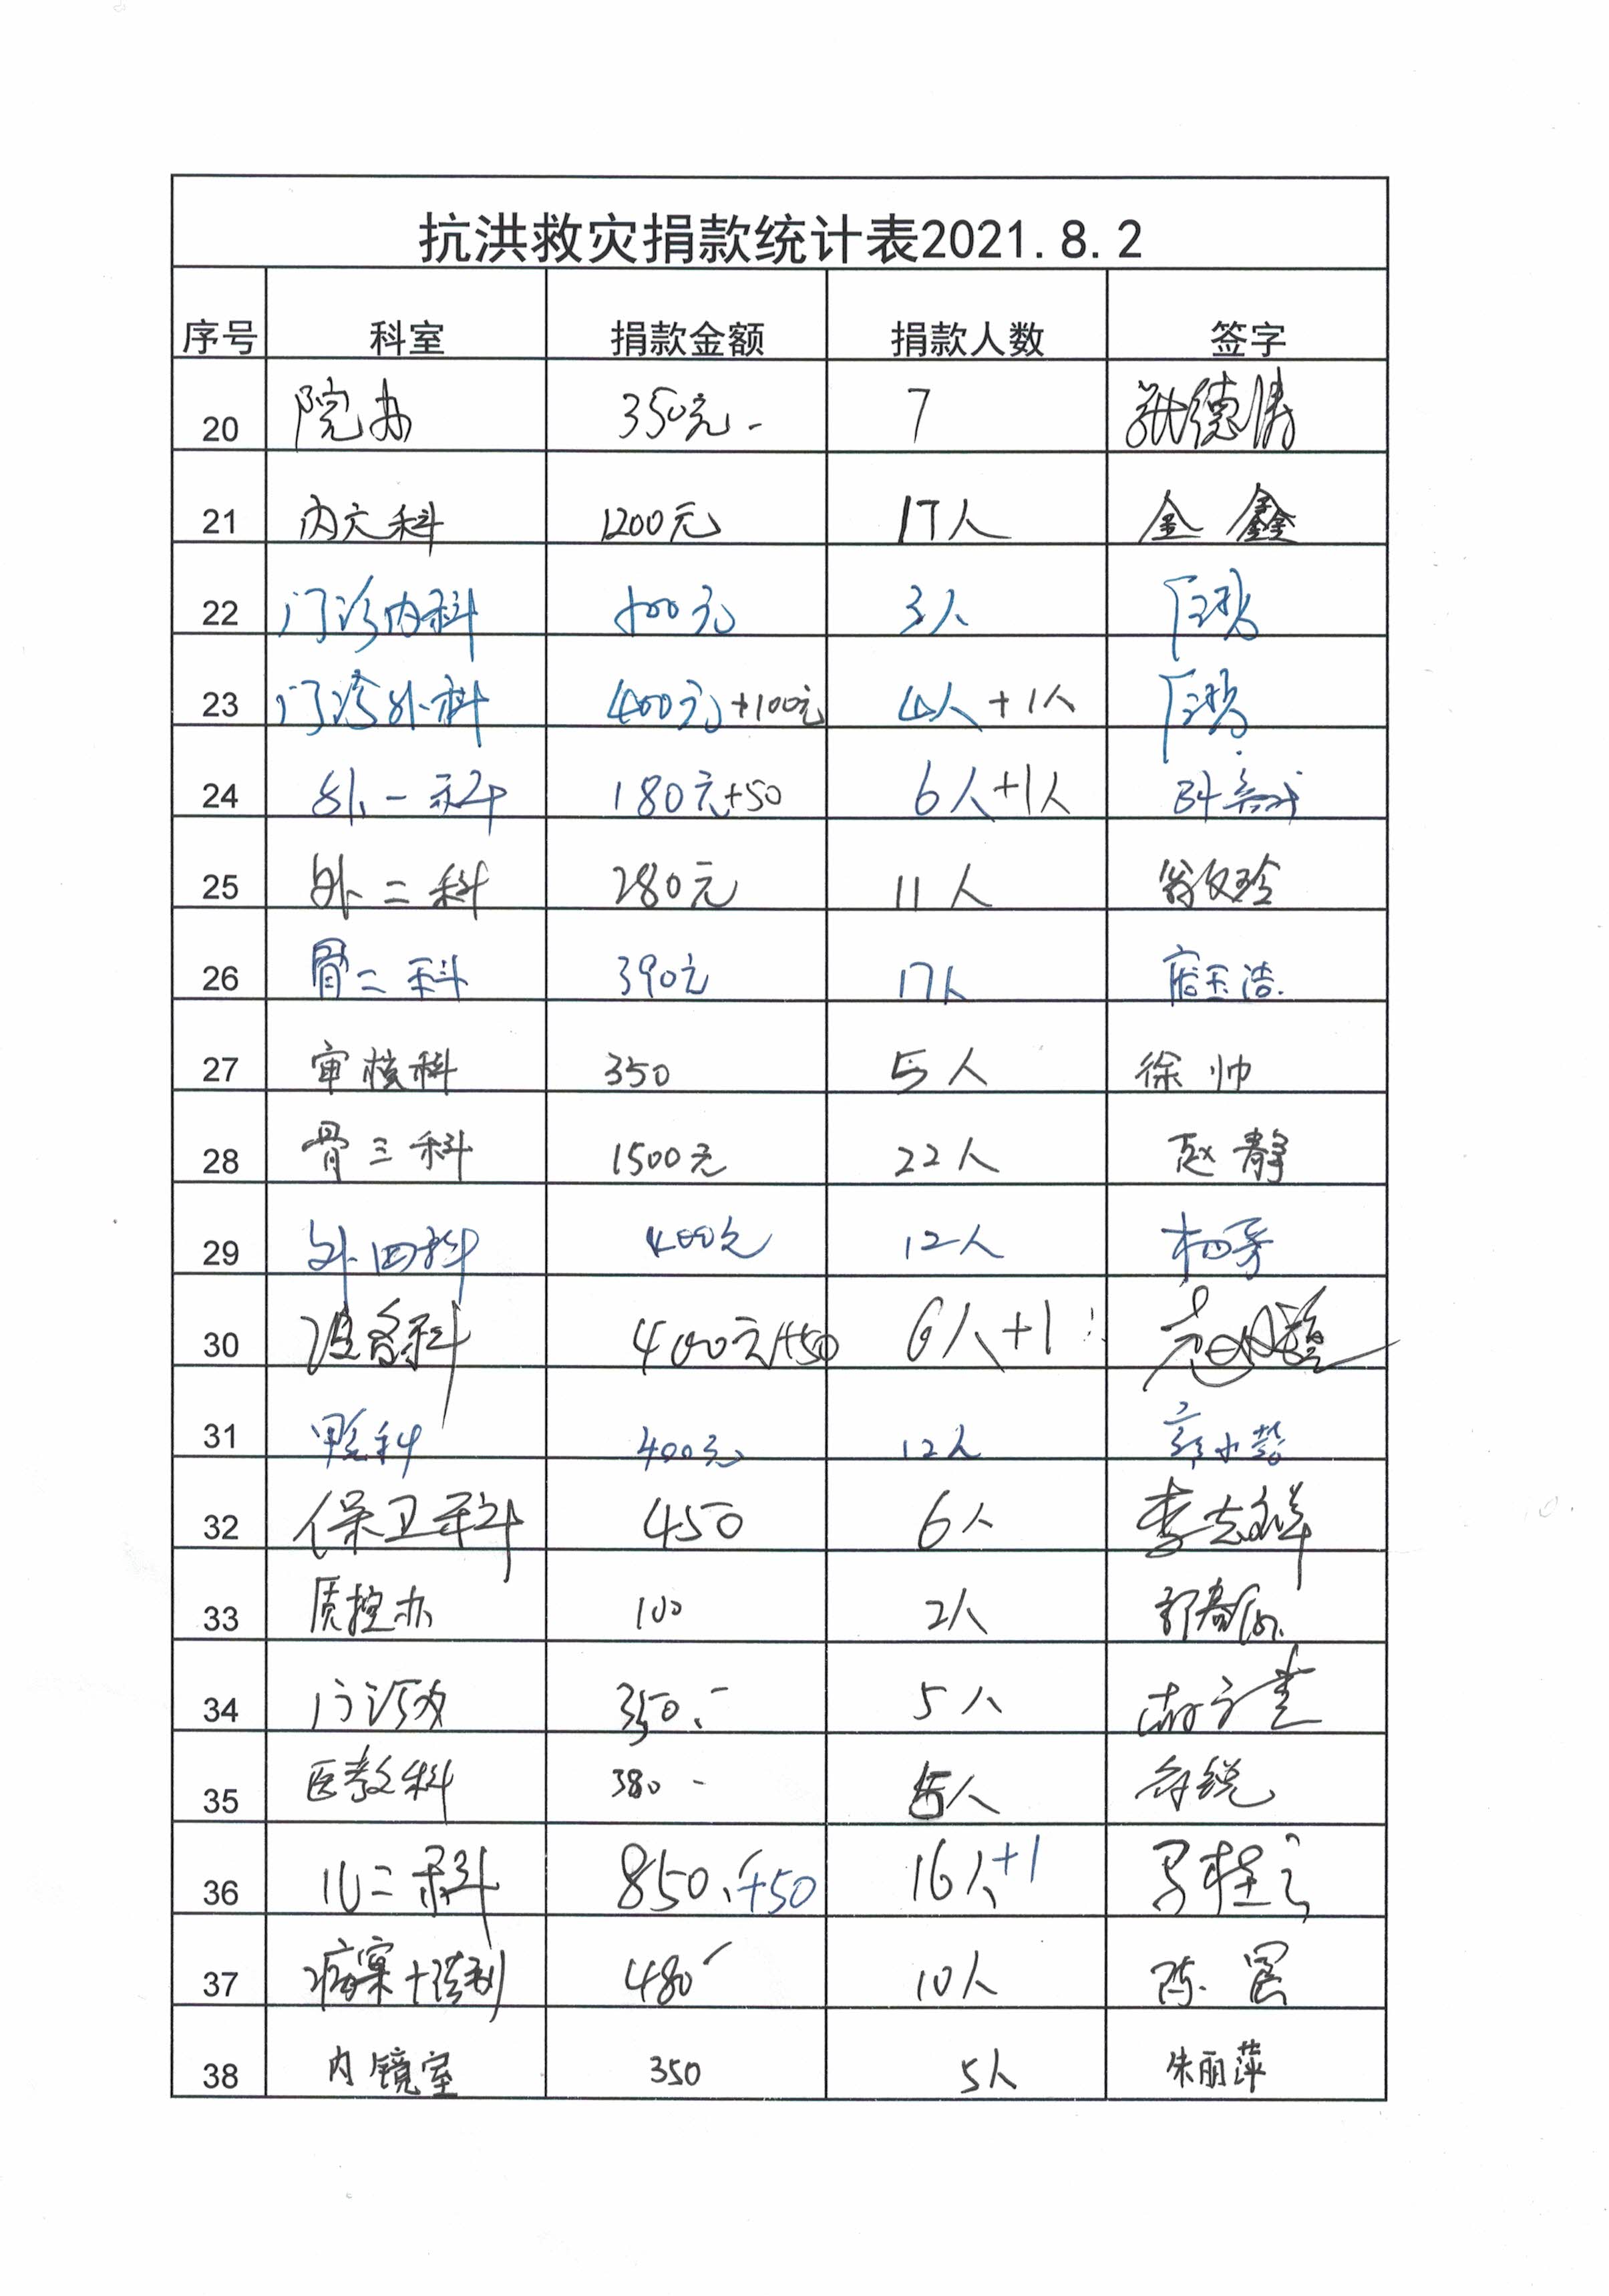 抗洪救灾捐款统计表2021.8.2
序号 科室 捐款金额 捐款人数 签字
20 院办 350元.- 7
21 内六科 1200元 17人 金鑫
22 门诊内科 元 3人
23 门诊外科 400元+100元 4人+1人
24 外一科 180元+50 6人+1人
25 外二科 280元 11人
26 骨二科 390元 17人
27 审核科 350 5人 徐帅
28 骨三科 1500元 22人 赵静
29 外四科 400元 12人
30 设备科 400元+50 6人+1
31 科 400元 12人
32 保卫科 450 6人 李志祥
33 质控办 100 2人
34 门诊办 350.- 5人
35 医教科 380- 5人
36 儿二科 850.+50 16人+1
37 病案+ 480 10人
38 内镜室 350 5人 朱丽萍